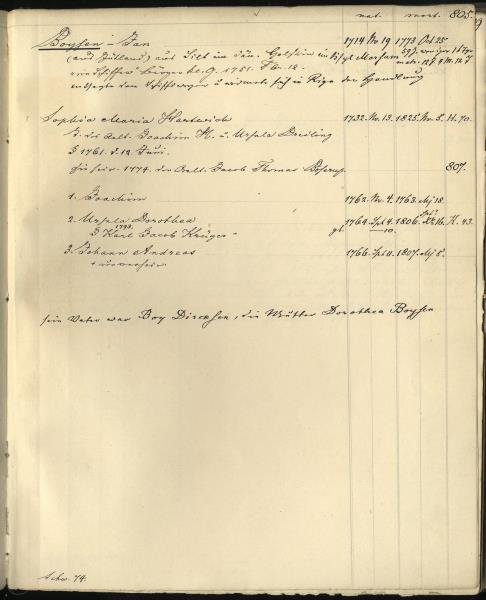 nat. mort. 805.
Boysen - Jan 1714 Nv 19 1773 Oct 25
(aus Jütland) aus Silt im dän. Holstein im
ein Schiffer Bürger d. 1751. Fbr. 12.
und widmete sich in Riga der Handlung
Sophia Maria Hartwich 1732. Nv. 13. 1825. Nv. 5. H. 70.
T. des Aelt. Joachim H. u. Ursula Dreiling
§ 1761. d. 12 Juni.
Sie heir. 1774. den Aelt. Jacob Thomas 807.
1. Joachim 1762. Nv. 4. 1763. Mj 18.
2. Ursula Dorothea 1764. Spt 4. 1806. 16. H. 43.
§ 1793. Karl Jacob Krüger 10.
3. Johann Andreas 1766. Spt 11. 1807. Mj 5.
+ unverheir.
sein Vater war Boy Dircksen, die Mutter Dorothea Boysen
Schw. 74.